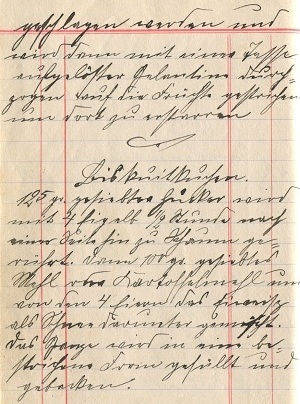 geschlagen werden und
wird dann mit einer Tasse
aufgelöster Gelantine durch
zogen auf die Früchte gestrichen
um dort zu erstarren
Biskuitkuchen.
125 gr. gesiebter Zucker wird
mit 4 Eigelb 1/2 Stunde nach
einer Seite hin zu Schaum ge-
rührt. Dann 100 gr. gesiebtes
Mehl oder Kartoffelmehl und
von den 4 Eiern das Eiweiß
als Schnee darunter gemischt.
Das Ganze wird in eine be-
strichene Form gefüllt und
gebacken.